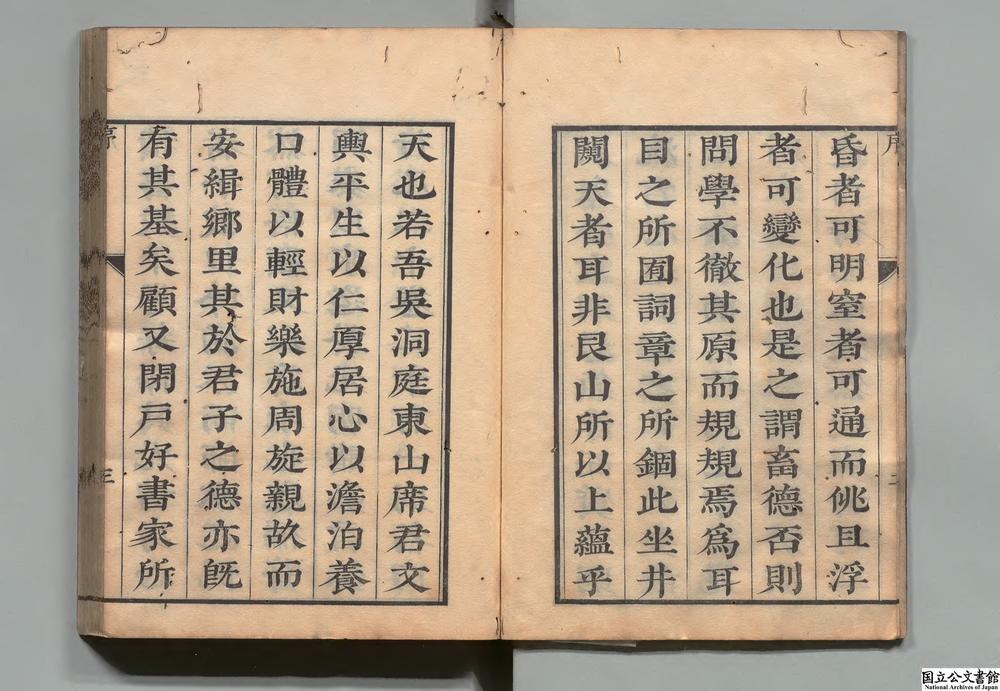 昏者可明窒者可通而佻且浮
者可變化也是之謂畜德否則
問學不徹其原而規規焉爲耳
目之所囿詞章之所錮此坐井
闚天者耳非艮山所以上蘊乎
天也若吾吳洞庭東山席君文
輿平生以仁厚居心以澹泊養
口體以輕財樂施周旋親故而
安緝鄉里其於君子之德亦旣
有其基矣顧又閉戸好書家所
序
二
序
三
国立公文書館
National Archives of Japan